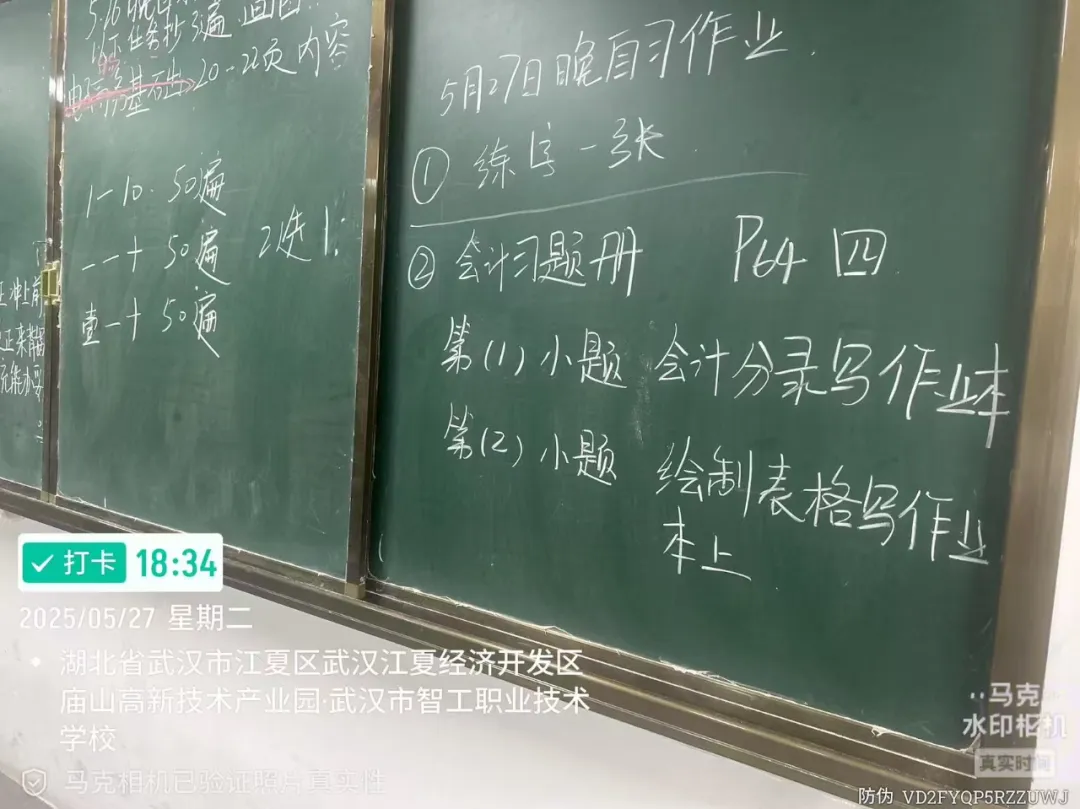 5.26晚自
任务抄3遍 画图
电子商务基础 20-22页内容
1-10. 50遍
一一十 50遍 2选1:
壹一十 50遍
5月27日晚自习作业.
① 练字一张.
② 会计习题册 P64 四.
第(1)小题 会计分录写作业本
第(2)小题 绘制表格写作业
本上
打卡 18:34
2025/05/27 星期二
湖北省武汉市江夏区武汉江夏经济开发区
庙山高新技术产业园·武汉市智工职业技术
学校
马克相机已验证照片真实性
马克
水印相机
真实时间
防伪 VD2FYQP5RZZUWJ